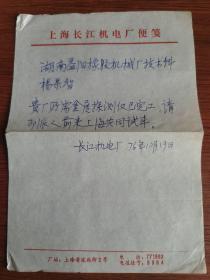 上海长江机电厂便笺
湖南益阳橡胶机械厂技术科
杨荣智
贵厂所需金属探测仪已完工，请
即派人前来上海共同试车。
长江机电厂 76年10月19日
厂址：上海黄陂北路
电话：
电报挂号：